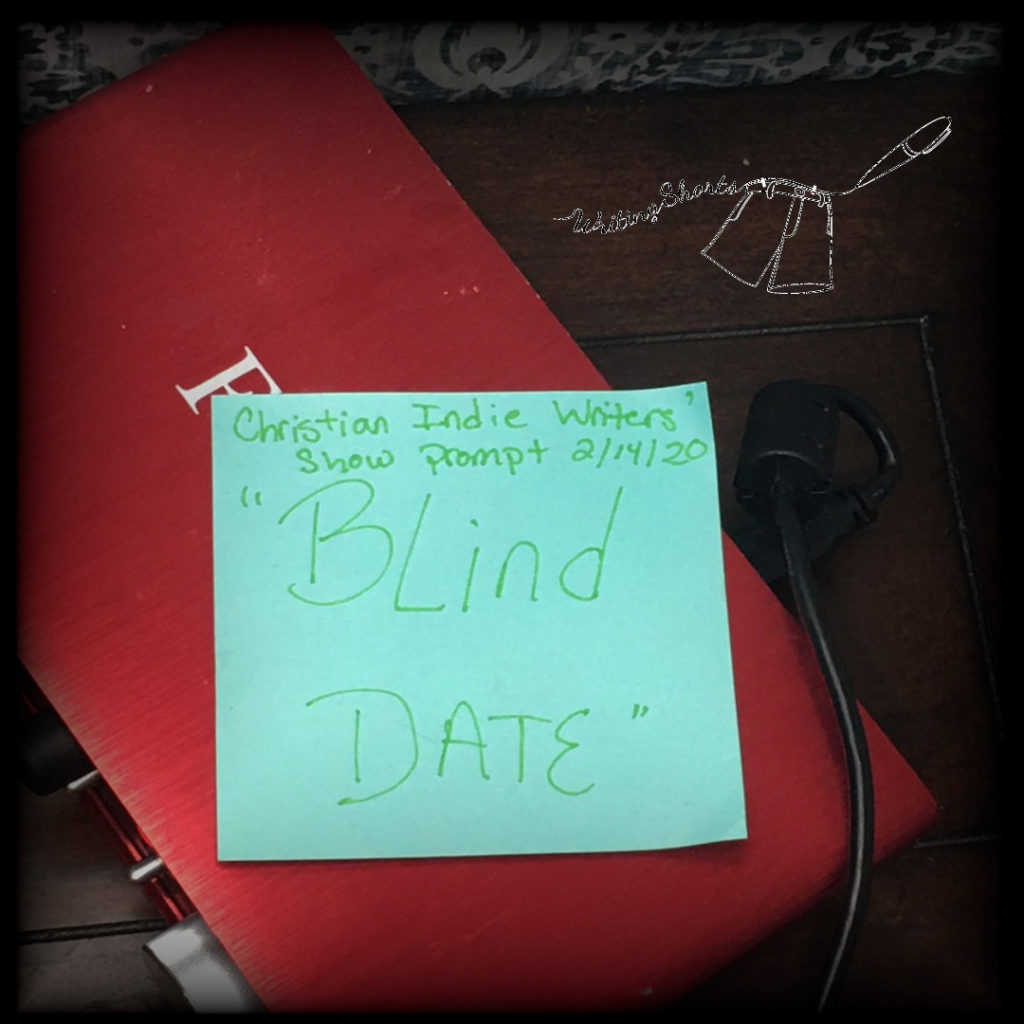 Writing Shorts
F
Christian Indie Writers'
Show Prompt 2/14/20
"BLind
DATE"